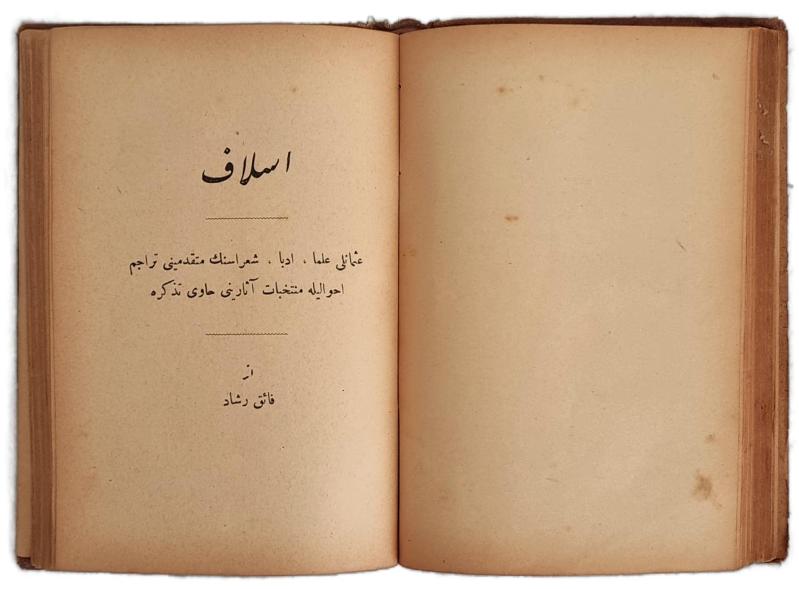 اسلاف
عثمانلی علما ، ادبا ، شعراسنك متقدمینی تراجم
احوالیله منتخبات آثارینی حاوی تذكره
از
فائق رشاد